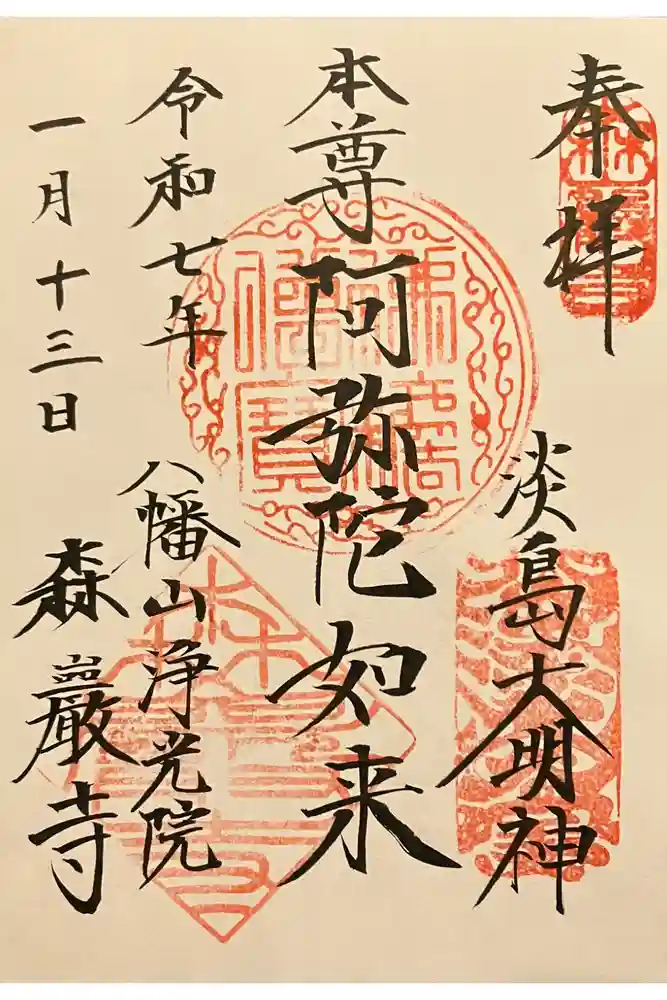 奉拝
淡島大明神
本尊阿弥陀如来
令和七年
八幡山浄光院
一月十三日
森巖寺